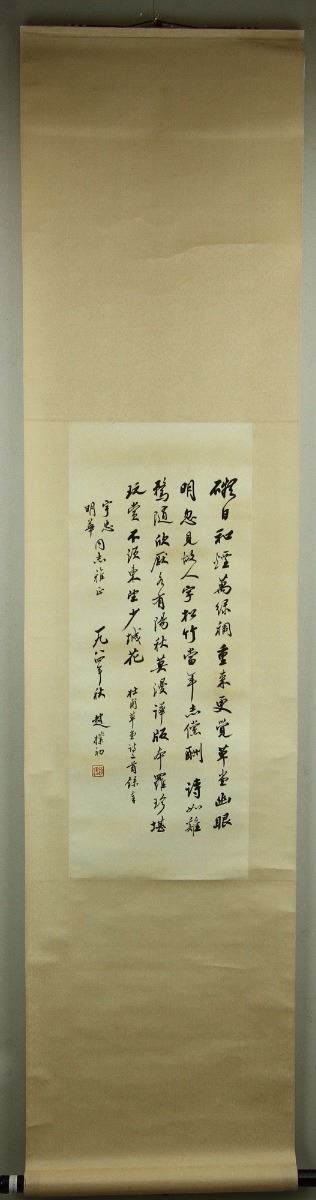 礙日和煙萬綠稠重來更覺草堂幽眼
明忽見故人字松竹當年志償酬 詩如雞
鶩隨欣厭各有陽秋莫漫評版本羅珍堪
玩賞不須東望少城花 杜甫草堂詩二首錄奉
宇忠
明華 同志雅正 一九八四年秋 趙樸初